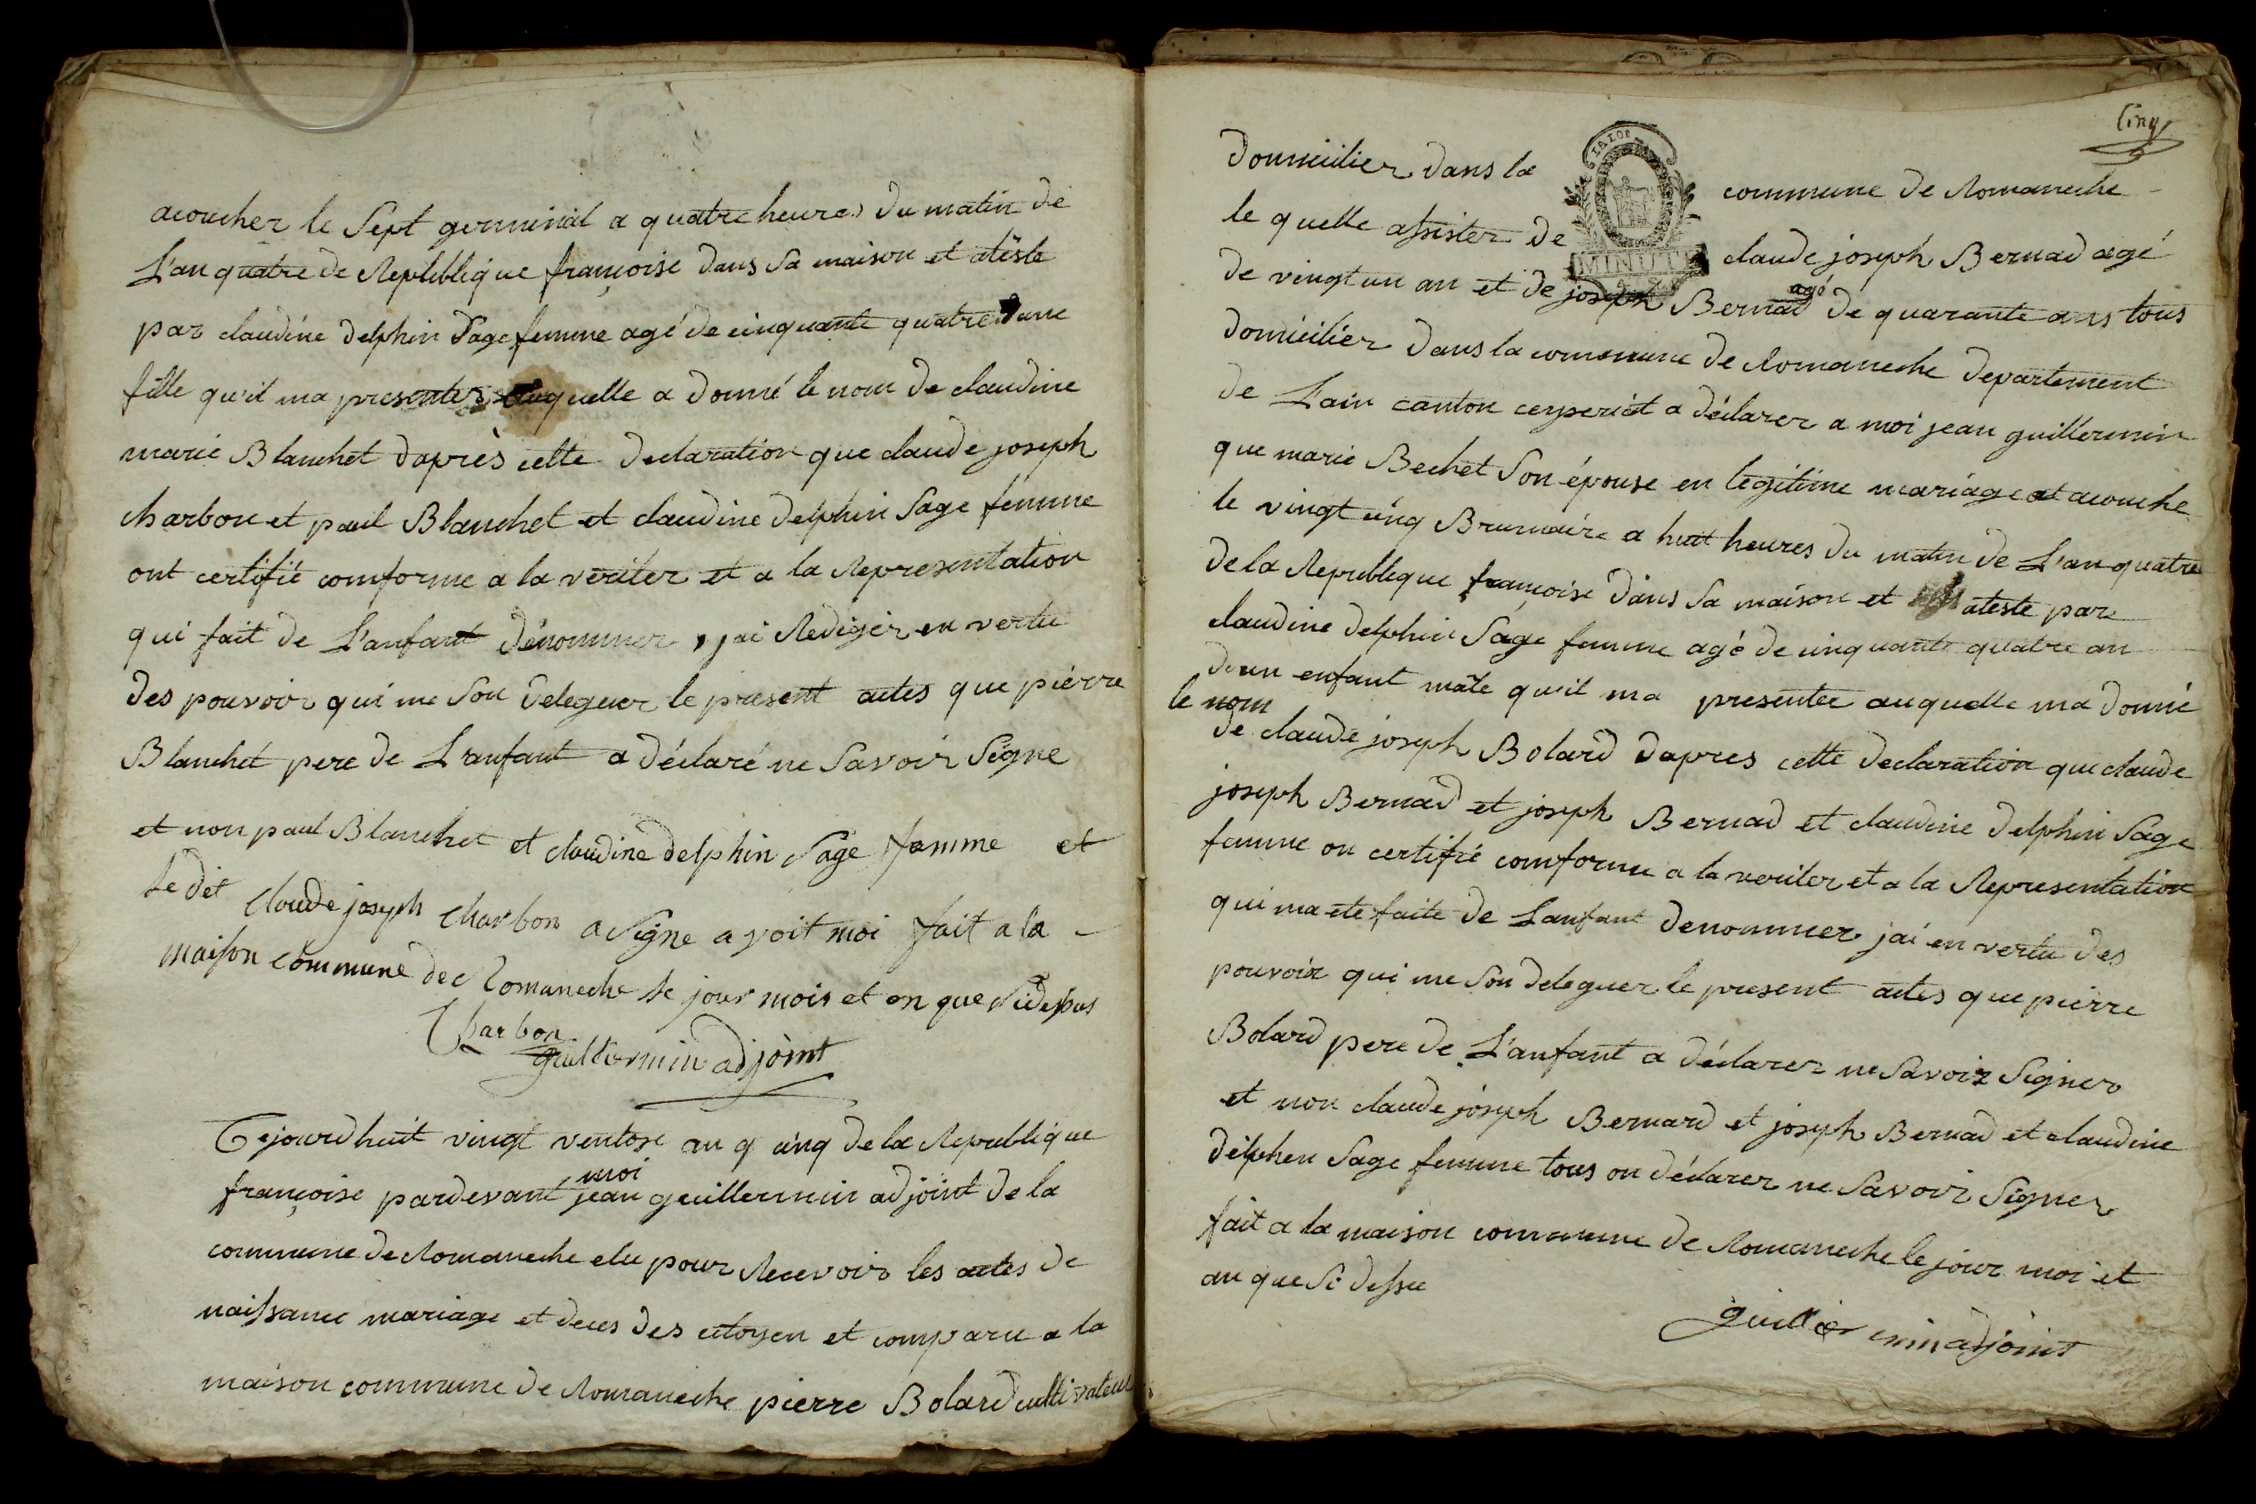 acoucher le Sept germinal a quatre heures du matin de
L'an quatre de Republique françoise dans Sa maison et atéste
par claudine delphin Sage femme agé de cinquante quatre dune
fille qu'il ma presenter auquelle a donné le nom de claudine
marie Blanchet daprès cette declaration que claude joseph
charbon et paul Blanchet et claudine delphin Sage femme
ont certifié comforme a la veriter et a la Representation
qui fait de L'anfant dénommer, jai Rediger en vertu
des pouvoir qui me Son deleguer le present actes que piérre
Blanchet pere de L'anfant a déclaré ne Savoir Signe
et non paul Blanchet et claudine delphin Sage famme et
le dit claude joseph charbon a Signe a voit moi fait a la
maison commune de Romaneche le jour mois et en que Sidessus
Charbon
guillermin adjoint
Cejourdhuit vingt ventose an q cinq de la Republique
françoise pardevant moi jean guillermin adjoint de la
commune de Romaneche elu pour Recevoir les actes de
naissance mariage et deces des citoyen et comparu a la
maison commune de Romaneche pierre Bolard cultivateur
Cinq
LA LOI
MINUTE
domicilier dans la commune de Romaneche
le quelle assister de claude joseph Bernad agé
de vingt un an et de joseph Bernad agé de quarante ans tous
domicilier dans la commune de Romaneche departement
de Lain canton ceyseriat a déclarer a moi jean guillermin
que marie Bechet Son épouse en légitime mariage at acouche
le vingt cinq Brumaire a huit heures du matin de L'an quatre
de la Republique françoise dans Sa maison et ateste par
claudine delphin Sage femme agé de cinquante quatre an
d'un enfant mâle qu'il ma presentee auquelle ma donné
le nom
de claude joseph Bolard dapres cette declaration que claude
joseph Bernad et joseph Bernad et claudine delphin Sage
femme on certifié comforme a la veriter et a la Representation
qui ma ete faite de Lanfant denommer jai en vertu des
pouvoir qui me Son deleguer le present actes que pierre
Bolard pere de L'anfant a déclarer ne Savoir Signer
et non claude joseph Bernard et joseph Bernad et claudine
delphen Sage femme tous on déclarer ne Savoir Signer
fait a la maison commune de Romaneche le jour moi et
an que Si dessu
guillermin adjoint